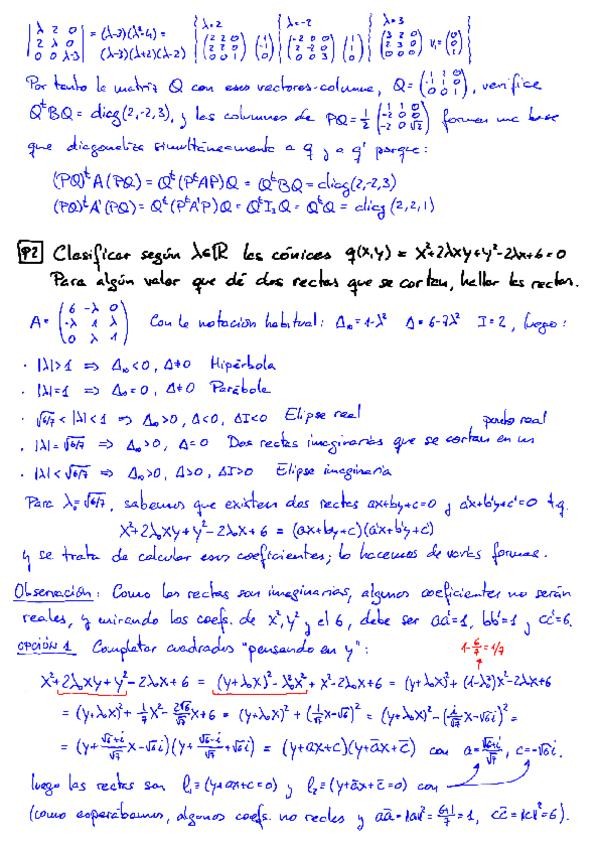 |λ 2 0; 2 λ 0; 0 0 λ-3| = (λ-3)(λ²-4) = (λ-3)(λ+2)(λ-2) { λ=2 (2 2 0; 2 2 0; 0 0 -1) (1; -1; 0) { λ=-2 (-2 2 0; 2 -2 0; 0 0 -5) (1; 1; 0) { λ=3 (3 2 0; 2 3 0; 0 0 0) v₁=(0; 0; 1)
Por tanto la matriz Q con esos vectores-columna, Q=(1 1 0; -1 1 0; 0 0 1), verifica
QᵗBQ = diag(2,-2,3), y las columnas de PQ = 1/2 (-1 1 0; -2 0 0; -2 0 √2) forman una base
que diagonaliza simultáneamente a q y a q' porque:
(PQ)ᵗA(PQ) = Qᵗ(PᵗAP)Q = QᵗBQ = diag(2,-2,3)
(PQ)ᵗA'(PQ) = Qᵗ(PᵗA'P)Q = QᵗI₃Q = QᵗQ = diag(2,2,1)
P2 Clasificar según λ∈ℝ las cónicas q(x,y) = x²+2λxy+y²-2λx+6=0
Para algún valor que dé dos rectas que se cortan, hallar las rectas.
A = (6 -λ 0; -λ 1 λ; 0 λ 1) Con la notación habitual: Δ₀₀=1-λ² Δ=6-7λ² I=2, luego:
· |λ|>1 ⇒ Δ₀₀<0, Δ≠0 Hipérbola
· |λ|=1 ⇒ Δ₀₀=0, Δ≠0 Parábola
· √6/7<|λ|<1 ⇒ Δ₀₀>0, Δ<0, ΔI<0 Elipse real
· |λ|=√6/7 ⇒ Δ₀₀>0, Δ=0 Dos rectas imaginarias que se cortan en un punto real
· |λ|<√6/7 ⇒ Δ₀₀>0, Δ>0, ΔI>0 Elipse imaginaria
Para λ₀=√6/7, sabemos que existen dos rectas ax+by+c=0 y a'x+b'y+c'=0 t.q.
x²+2λ₀xy+y²-2λ₀x+6 = (ax+by+c)(a'x+b'y+c')
y se trata de calcular esos coeficientes; lo hacemos de varias formas.
Observación: Como las rectas son imaginarias, algunos coeficientes no serán
reales, y mirando los coefs. de x², y² y el 6, debe ser aa'=1, bb'=1 y cc'=6.
OPCIÓN 1 Completar cuadrados "pensando en y": 1-6/7=1/7
x²+2λ₀xy+y²-2λ₀x+6 = (y+λ₀x)²-λ₀²x²+x²-2λ₀x+6 = (y+λ₀x)²+(1-λ₀²)x²-2λ₀x+6
= (y+λ₀x)²+1/7x²-2√6/√7x+6 = (y+λ₀x)²+(1/√7x-√6)² = (y+λ₀x)²-(i/√7x-√6i)² =
= (y+√6+i/√7x-√6i)(y+√6-i/√7x+√6i) = (y+ax+c)(y+āx+c̄) con a=√6+i/√7, c=-√6i.
luego las rectas son l₁≡(y+ax+c=0) y l₂≡(y+āx+c̄=0) con
(como esperábamos, algunos coefs. no reales y aā=|a|²=6+1/7=1, cc̄=|c|²=6).